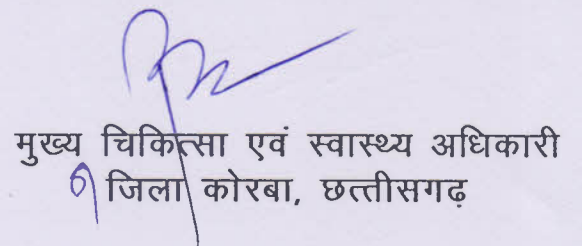 मुख्य चिकित्सा एवं स्वास्थ्य अधिकारी
जिला कोरबा, छत्तीसगढ़